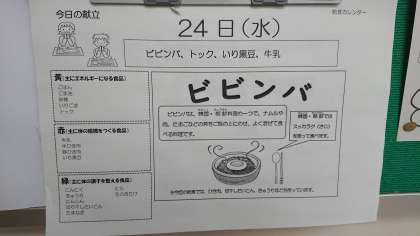 今日の献立
給食カレンダー
24日(水)
ビビンバ、トック、いり黒豆、牛乳
黄(主にエネルギーになる食品)
ごはん
ごま油
砂糖
いりごま
トック
赤(主に体の組織をつくる食品)
牛乳
いり黒豆
緑(主に体の調子を整える食品)
にんにく
きゅうり
にんじん
切り干し大根
たまねぎ
にら
ビビンバ
ビビンバは、韓国・朝鮮料理の一つで、ナムルや
肉、たまごなどの具をご飯の上にのせ、よく混ぜて食
べる料理です。
韓国・朝鮮では
スッカラク(さじ)
を使って食べます。